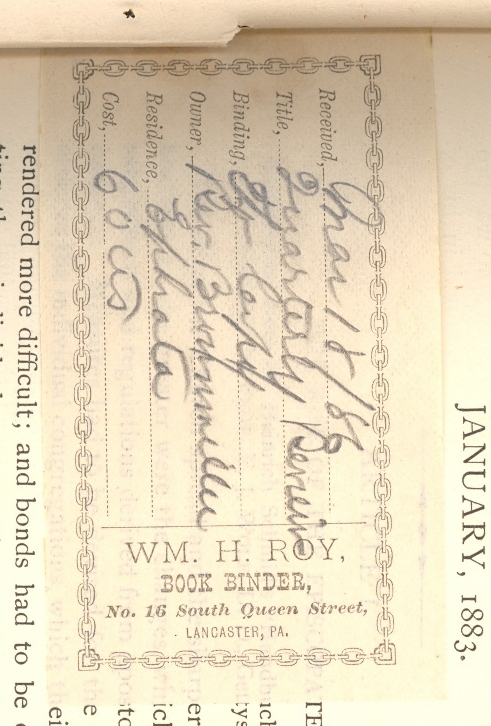 JANUARY, 1883.
Received, Mar 18/86
Title, Quarterly Review
Binding, Hf Calf
Owner, Rev. Brownmiller
Residence, Ephrata
Cost, 60 cts
WM. H. ROY,
BOOK BINDER,
No. 16 South Queen Street,
LANCASTER, PA.
rendered more difficult; and bonds had to be